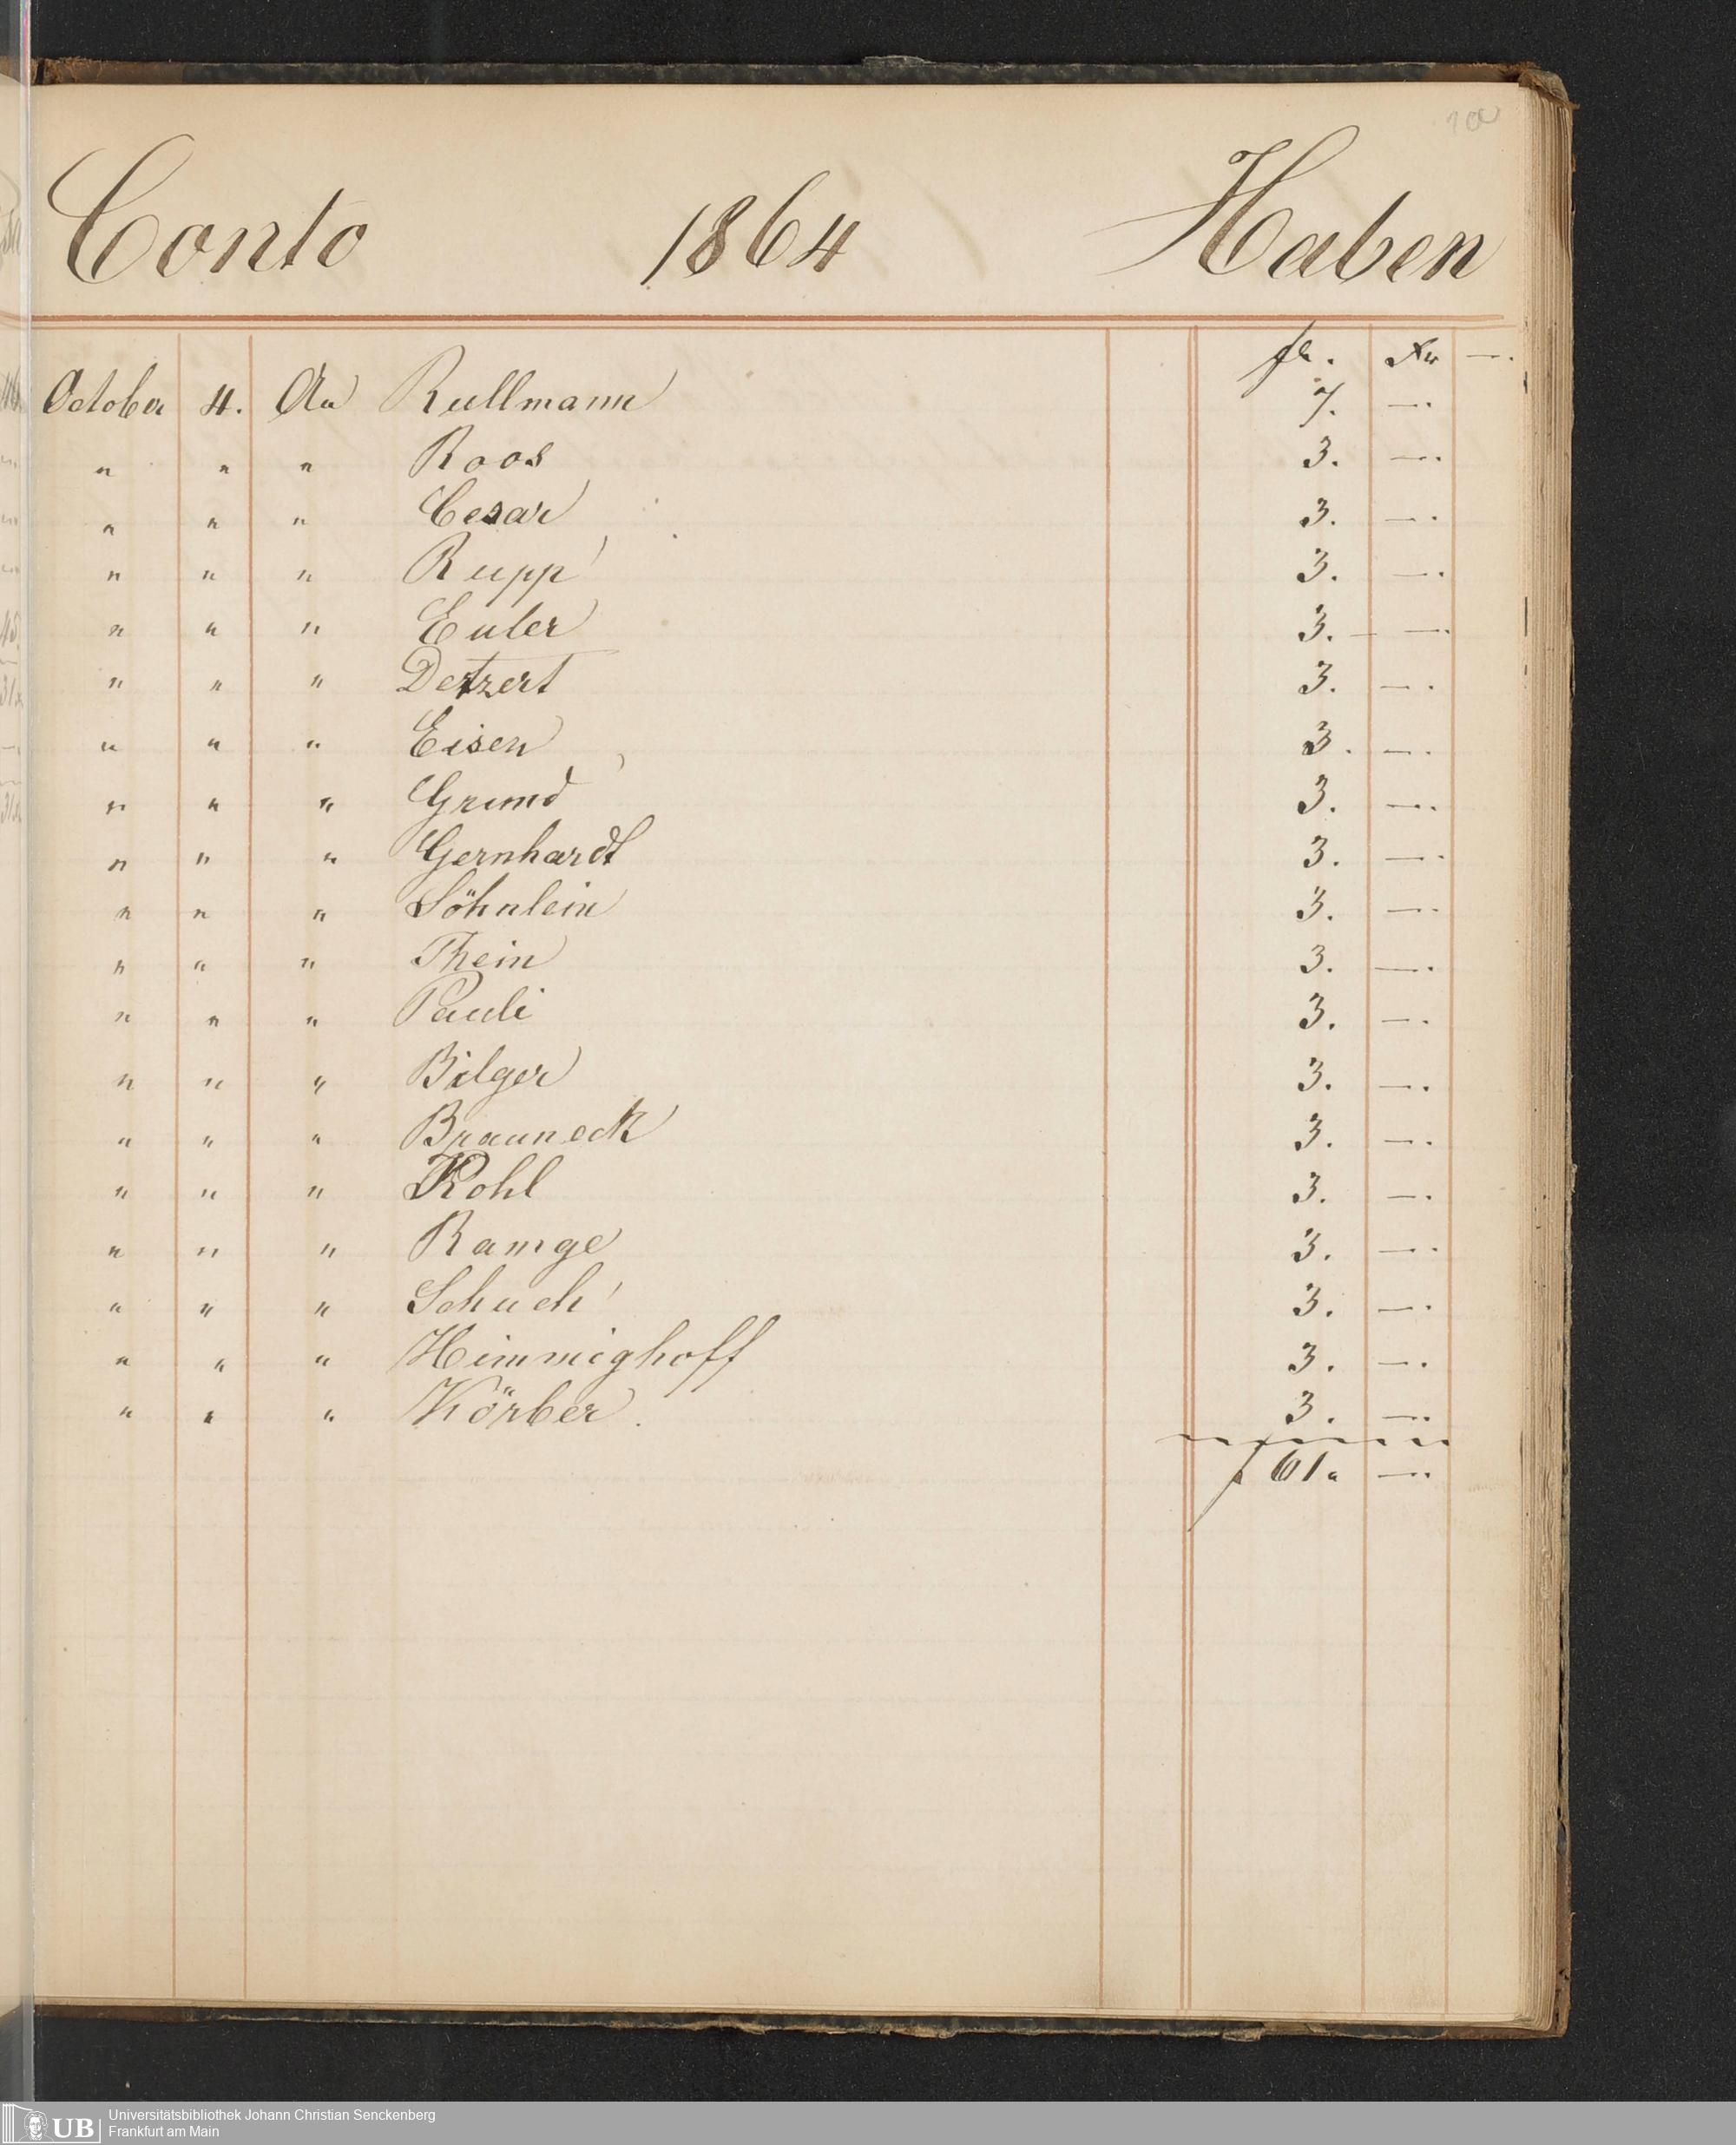 100
Conto 1864 Haben
fl. Xr —.
October 4. An Rullmann 7. —.
" " " Roos 3. —.
" " " Cesar 3. —.
" " " Rupp 3. —.
" " " Euler 3. — —.
" " " Detzert 3. —.
" " " Eisen 3. —.
" " " Grund 3. —.
" " " Gernhardt 3. —.
" " " Söhnlein 3. —.
" " " Thein 3. —.
" " " Pauli 3. —.
" " " Bilger 3. —.
" " " Brauneck 3. —.
" " " Kohl 3. —.
" " " Ramge 3. —.
" " " Schuch 3. —.
" " " Himmighoff 3. —.
" " " Körber. 3. —.
f 61. —.
UB Universitätsbibliothek Johann Christian Senckenberg
Frankfurt am Main